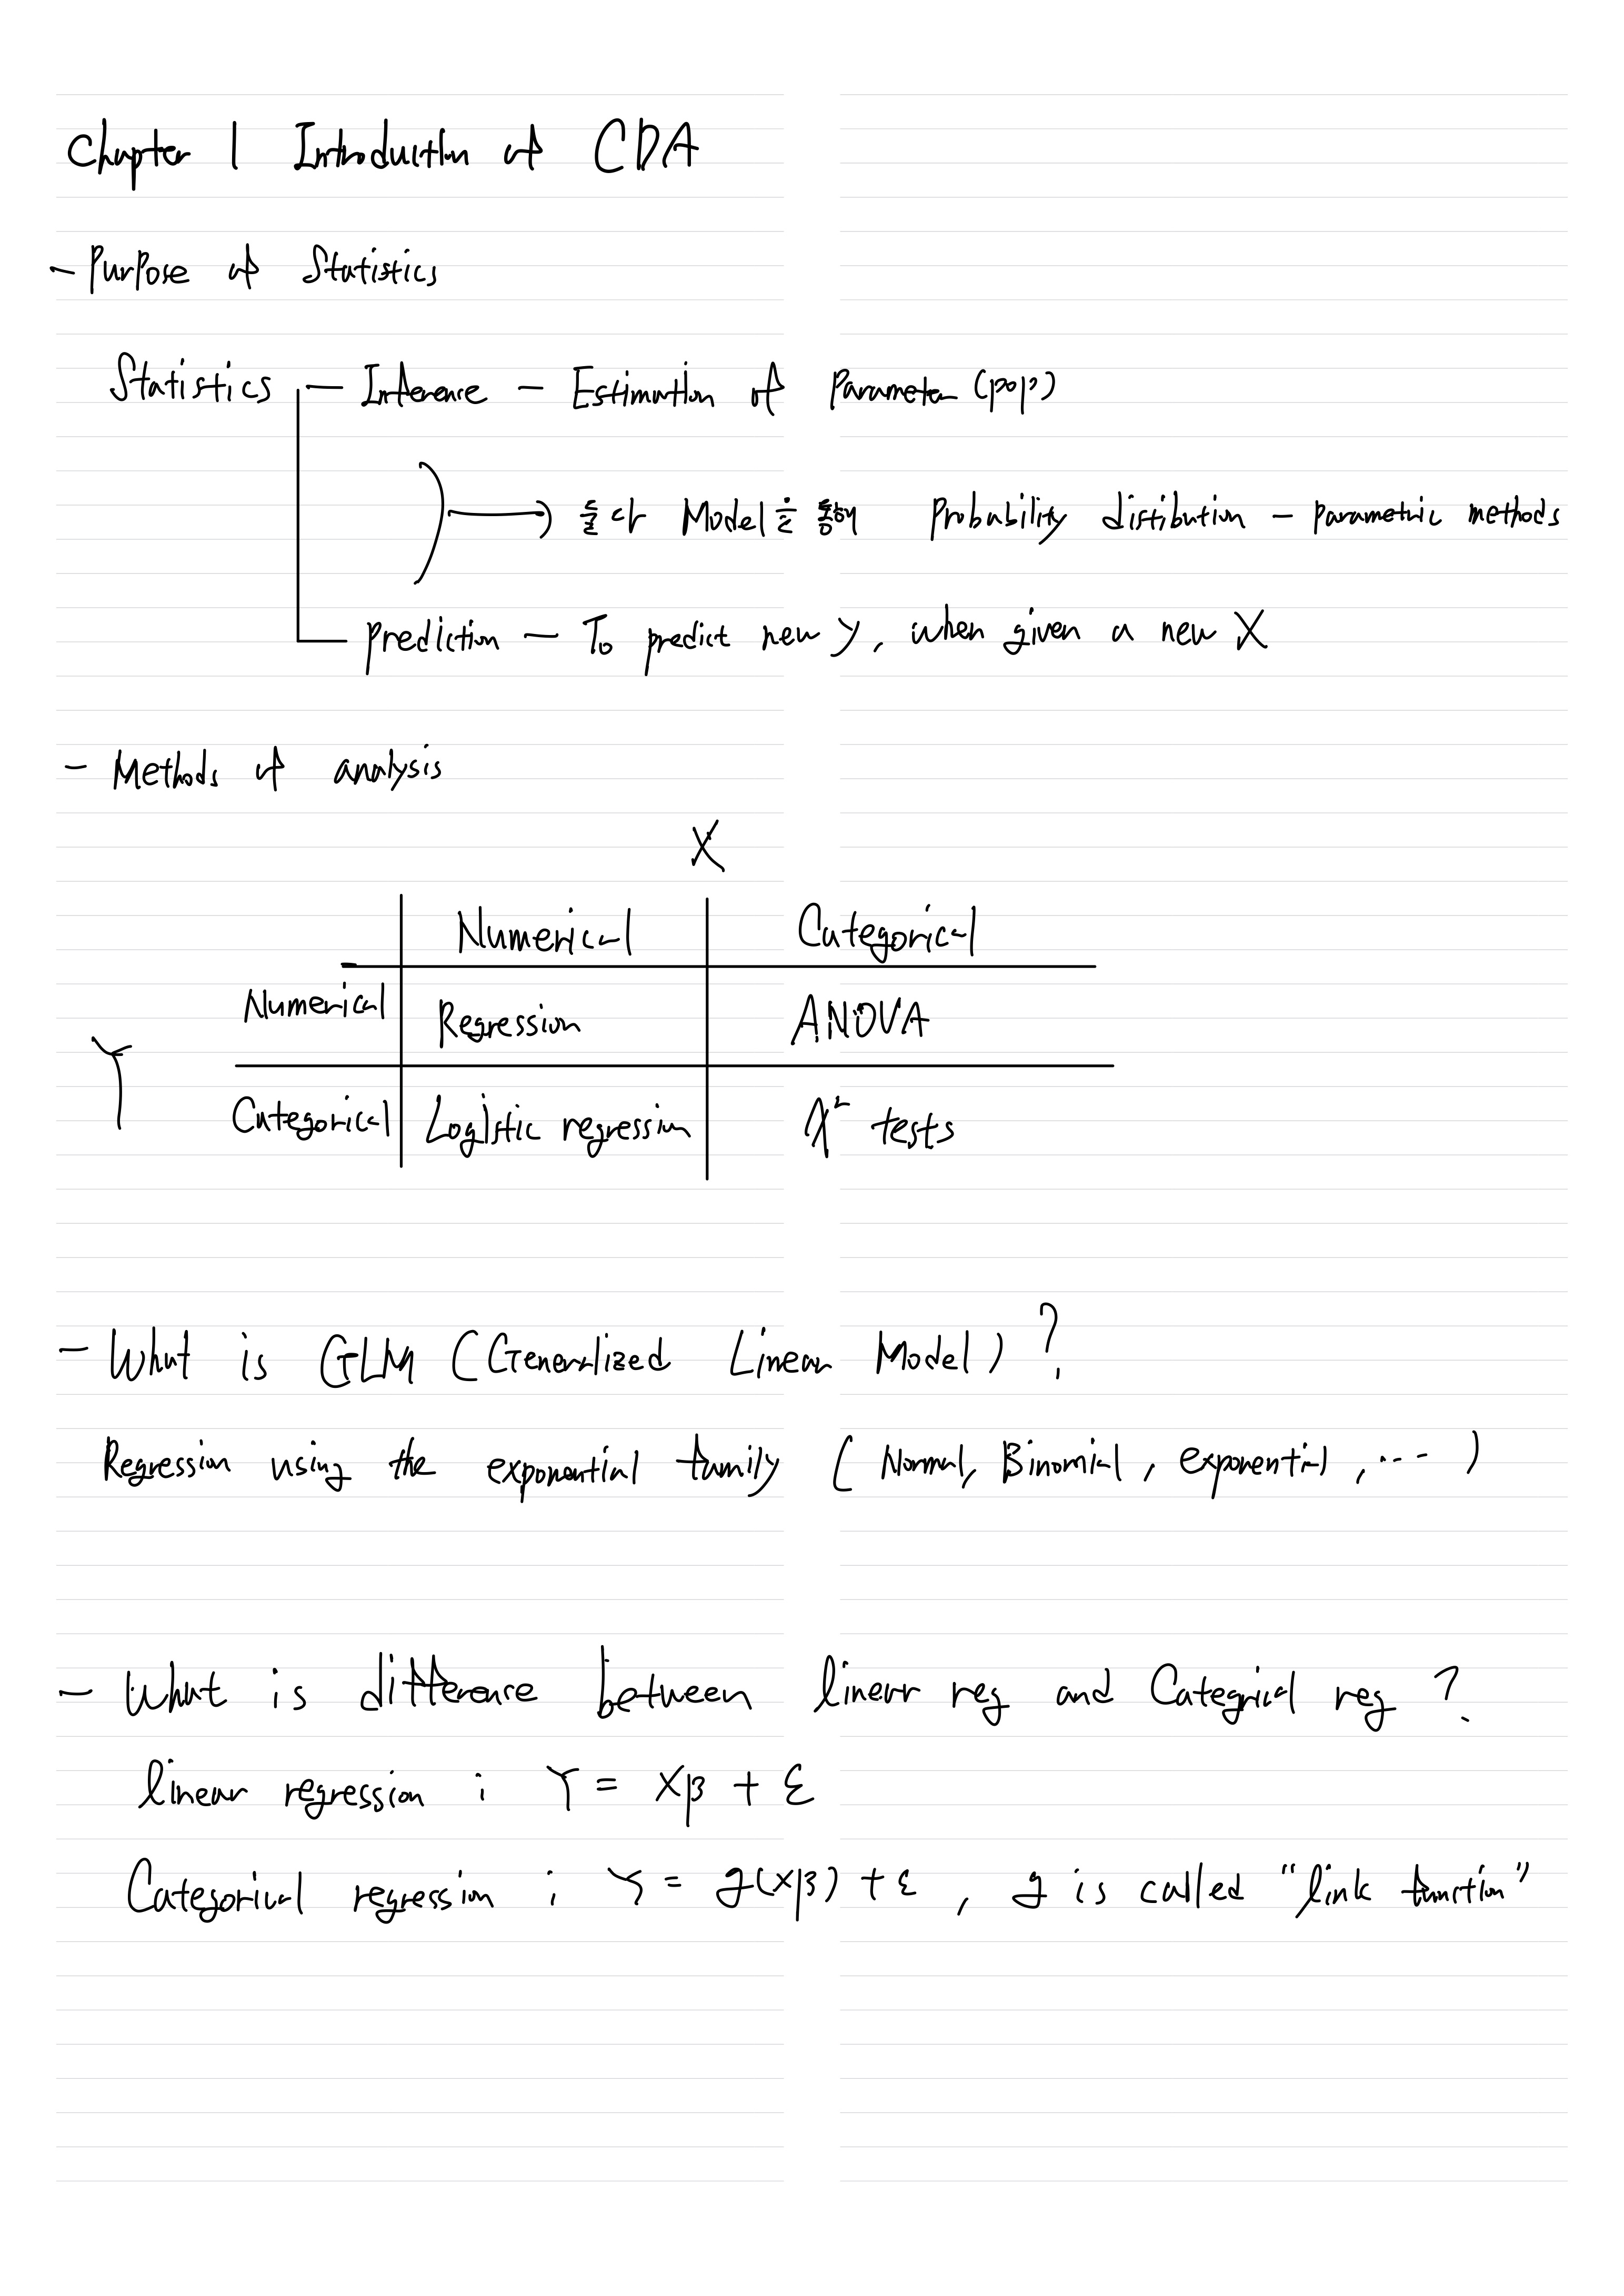 Chapter 1 Introduction of CDA
- Purpose of Statistics
Statistics - Inference - Estimation of Parameter (pop)
→ 둘다 Model을 통해 Probability distibution - parametric methods
prediction - To predict new y, when given a new X
- Methods of analysis
X
Numerical Categorical
Numerical Regression ANOVA
Y
Categorical Logistic regression χ² tests
- What is GLM (Generalized Linear Model) ?
Regression using the exponential family ( Normal, Binomial, exponential, ... )
- What is difference between linear reg and Categrical reg ?
linear regression : Y = Xβ + ε
Categorical regression : Y = g(Xβ) + ε , g is called "link function"